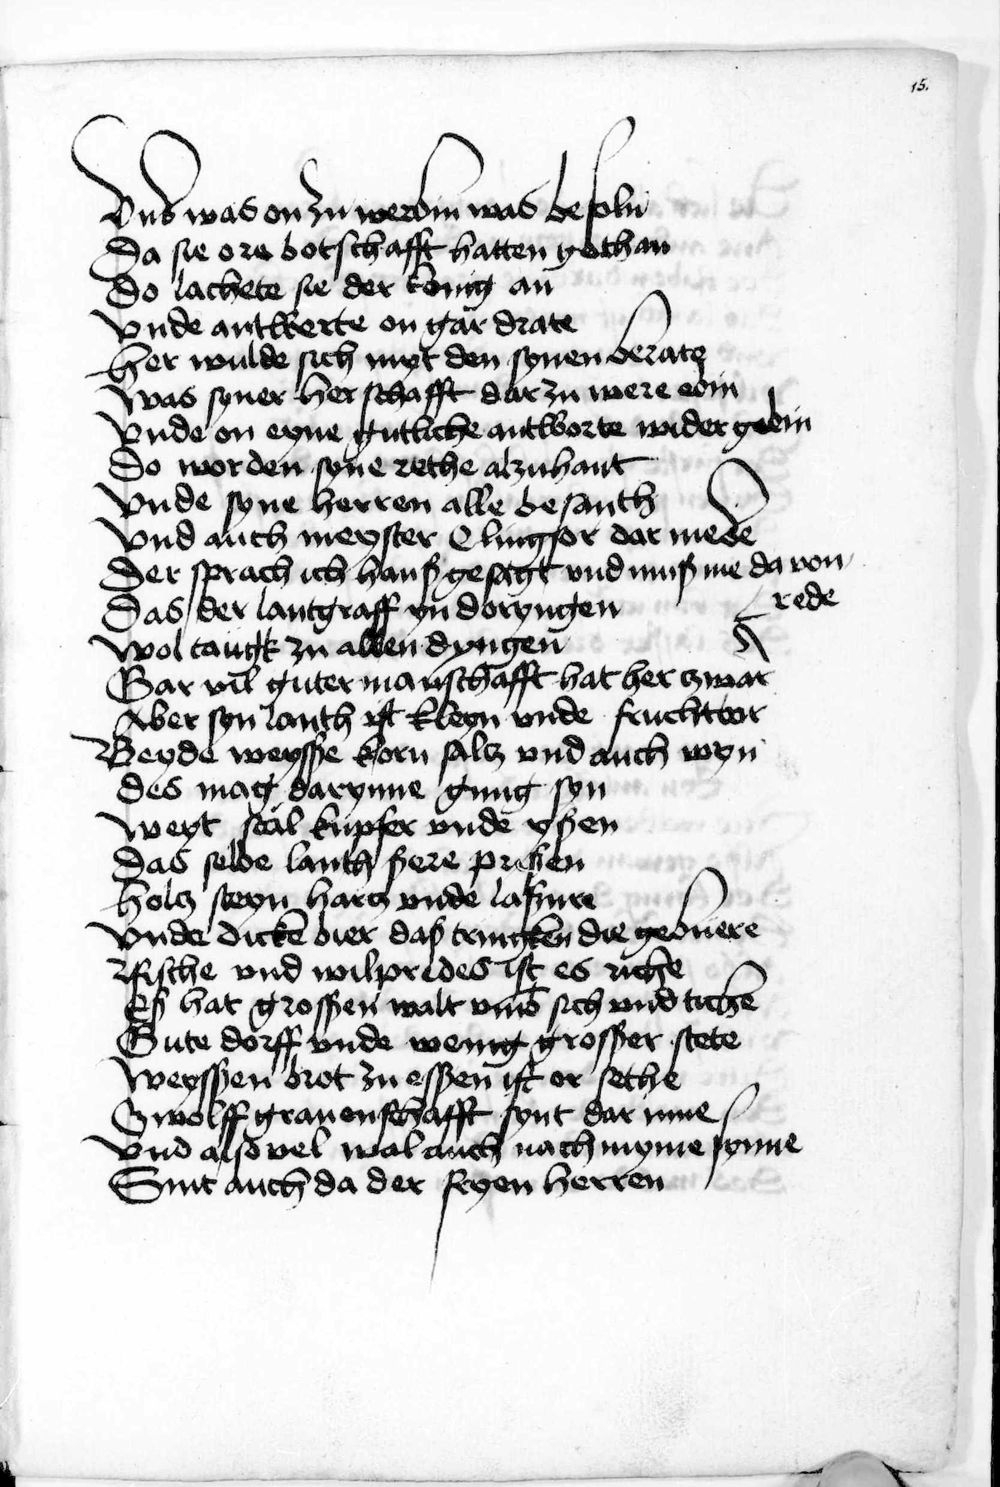 15.
Vnd was on zu werbin was befoln
Da sie ore botschafft hatten gethan
Do lachete sie der konig an
Vnde antwerte on gar drate
Her wulde sich myt den synen berate
Was syner herschafft dar zu were ebin
Vnde on eyne gutliche antworte wider gebin
Do worden syne rethe alzuhant
Vnde syne herren alle besanth
Vnd auch meyster Clingsor dar mede
Der sprach ich hanß gesagt vnd muß me da von
rede
Das der lantgraff yn doryngen
Wol taugk zu allen dyngen
Gar vil guter manschafft hat her zwar
Aber syn lanth yst kleyn vnde fruchtbar
Beyde weysße korn saltz vnd auch wyn
des mag darynne gnug syn
Weyt stal kupfer vnde yßen
Das selbe lanth ßere prißen
Holtz steyn hartz vnde laßure
Vnde dicke bier daß tringken die gebuere
Vische vnd wilpredes ist es riche
Eß hat grosßen walt vmb sich vnd tiche
Gute dorff vnde wenig grosßer stete
Weysßen brot zu esßen ist or sethe
Zwolff grauenschafft synt dar inne
Vnd also vel wol auch nach myme synne
Sint auch da der fryen herren